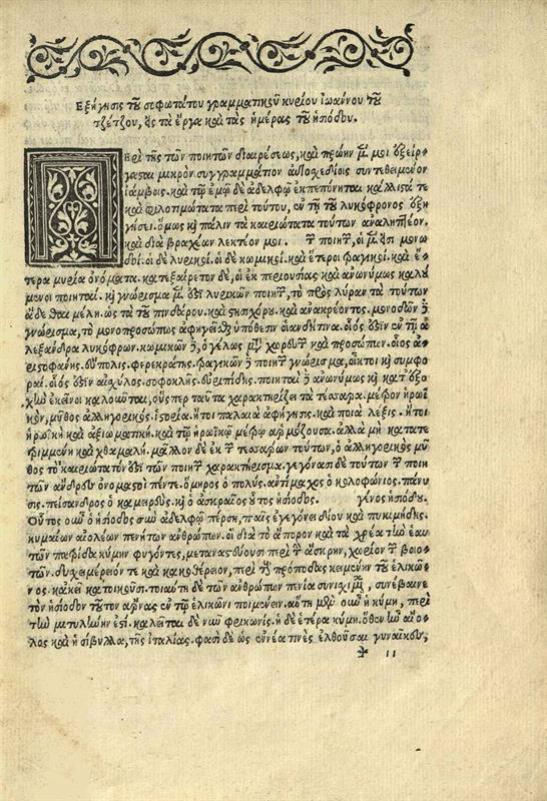 Εξήγησις τοῦ σοφωτάτου γραμματικοῦ κυρίου ἰωάννου τοῦ
τζέτζου, εἰς τὰ ἔργα καὶ τὰς ἡμέρας τοῦ ἡσιόδου.
Περὶ τῆς τῶν ποιητῶν διαιρέσεως, καὶ πρώην μέν μοι ἐξείρ
γασται μικρὸν συγγραμμάτιον αὐτοσχεδίοις συντεθειμένον
ἰάμβοις. καὶ τῷ ἐμῷ δὲ ἀδελφῷ ἐκπεπόνηται κάλλιστά τε
καὶ φιλοτιμώτατα περὶ τούτου, ἐν τῇ τοῦ λυκόφρονος ἐξη
γήσει. ὅμως καὶ πάλιν τὰ καιριώτατα τούτων ἀναληπτέον.
καὶ διὰ βραχέων λεκτέον μοι. τῶν ποιητῶν, οἱ μέν εἰσι μονω
δοί. οἱ δὲ λυρικοί. οἱ δὲ κωμικοί. καὶ ἕτεροι τραγικοί. καὶ ἕ
τερα μυρία ὀνόματα. κατεξαίρετον δὲ, οἱ ἐκ περιουσίας καὶ ἀνωνύμως καλού
μενοι ποιηταί. καὶ γνώρισμα μέν ἐστι λυρικῶν ποιητῶν, τὸ πρὸς λύραν τὰ τούτων
ᾄδεσθαι μέλη. ὡς τὰ τοῦ πινδάρου. καὶ στησιχόρου. καὶ ἀνακρέοντος. μονωδῶν δὲ
γνώρισμα, τὸ μονοπροσώπως ἀφηγεῖσθαι ὑπόθεσιν οἱανδήτινα. οἷός ἐστιν ἐν τῇ ἀ
λεξάνδρᾳ λυκόφρων. κωμικῶν δὲ, ὁ γέλως μετὰ χορευτῶν καὶ προσώπων. οἷος ἀρι
στοφάνης. εὔπολις. φερεκράτης. τραγικῶν δὲ ποιητῶν γνώρισμα, οἶκτοι καὶ συμφο
ραί. οἷός ἐστιν αἰσχύλος. σοφοκλῆς. εὐριπίδης. ποιηταὶ δὲ ἀνωνύμως καὶ κατ' ἐξο
χὴν ἐκεῖνοι καλοῦνται, οὕς περ ταῦτα χαρακτηρίζει τὰ τέσσαρα. μέτρον ἡρωϊ
κὸν, μῦθος ἀλληγορικός. ἱστορία. ἤτοι παλαιὰ ἀφήγησις. καὶ ποιὰ λέξις. ἤτοι
ἡρωϊκὴ καὶ ἀξιωματικὴ. καὶ τῷ ἡρωϊκῷ μέτρῳ ἁρμόζουσα. ἀλλὰ μὴ κατατε
τριμμένη καὶ χθαμαλή. μᾶλλον δὲ ἐκ τῶν τεσσάρων τούτων, ὁ ἀλληγορικὸς μῦ
θος τὸ καιριώτατόν ἐστι τῶν ποιητῶν χαρακτήρισμα. γεγόνασι δὲ τούτων τῶν ποιη
τῶν ἄνδρες ὀνομαστοὶ πέντε. ὅμηρος ὁ πολύς. ἀντίμαχος ὁ κολοφώνιος. πανύα
σις. πείσανδρος ὁ καμειρεύς. καὶ ὁ ἀσκραῖος οὗτος ἡσίοδος. γένος ἡσιόδου.
Οὗτος οὖν ὁ ἡσίοδος σὺν ἀδελφῷ πέρσῃ, παῖς ἐγεγόνει δίου καὶ πυκιμήδης.
κυμαίων αἰολέων πενήτων ἀνθρώπων. οἳ διὰ τὸ ἄπορον καὶ τὰ χρέα τὴν ἑαυ
τῶν πατρίδα κύμην φυγόντες, μεταναστεύουσι περὶ τὴν ἄσκρην, χωρίον τῶν βοιω
τῶν. δυσχείμερόν τε καὶ κακοθέρειον, περὶ τοὺς πρόποδας κειμένην τοῦ ἑλικῶ
νος. κἀκεῖ κατοικοῦσι. τοιαύτῃ δὲ τῶν ἀνθρώπων πενίᾳ συνισχημένων, συνέβαινε
τὸν ἡσίοδον τοῦτον ἄρνας ἐν τῷ ἑλικῶνι ποιμαίνειν. αὕτη μὲν οὖν ἡ κύμη, περὶ
τὴν μιτυλήνην ἐστί. καλεῖται δὲ νῦν φρικωνίς. ἡ δὲ ἑτέρα κύμη. ὅθεν ἦν αἴο
λος καὶ ἡ σίβυλλα, τῆς ἰταλίας. φασὶ δὲ ὡς ἐννέα τινὲς ἐλθοῦσαι γυναῖκες,